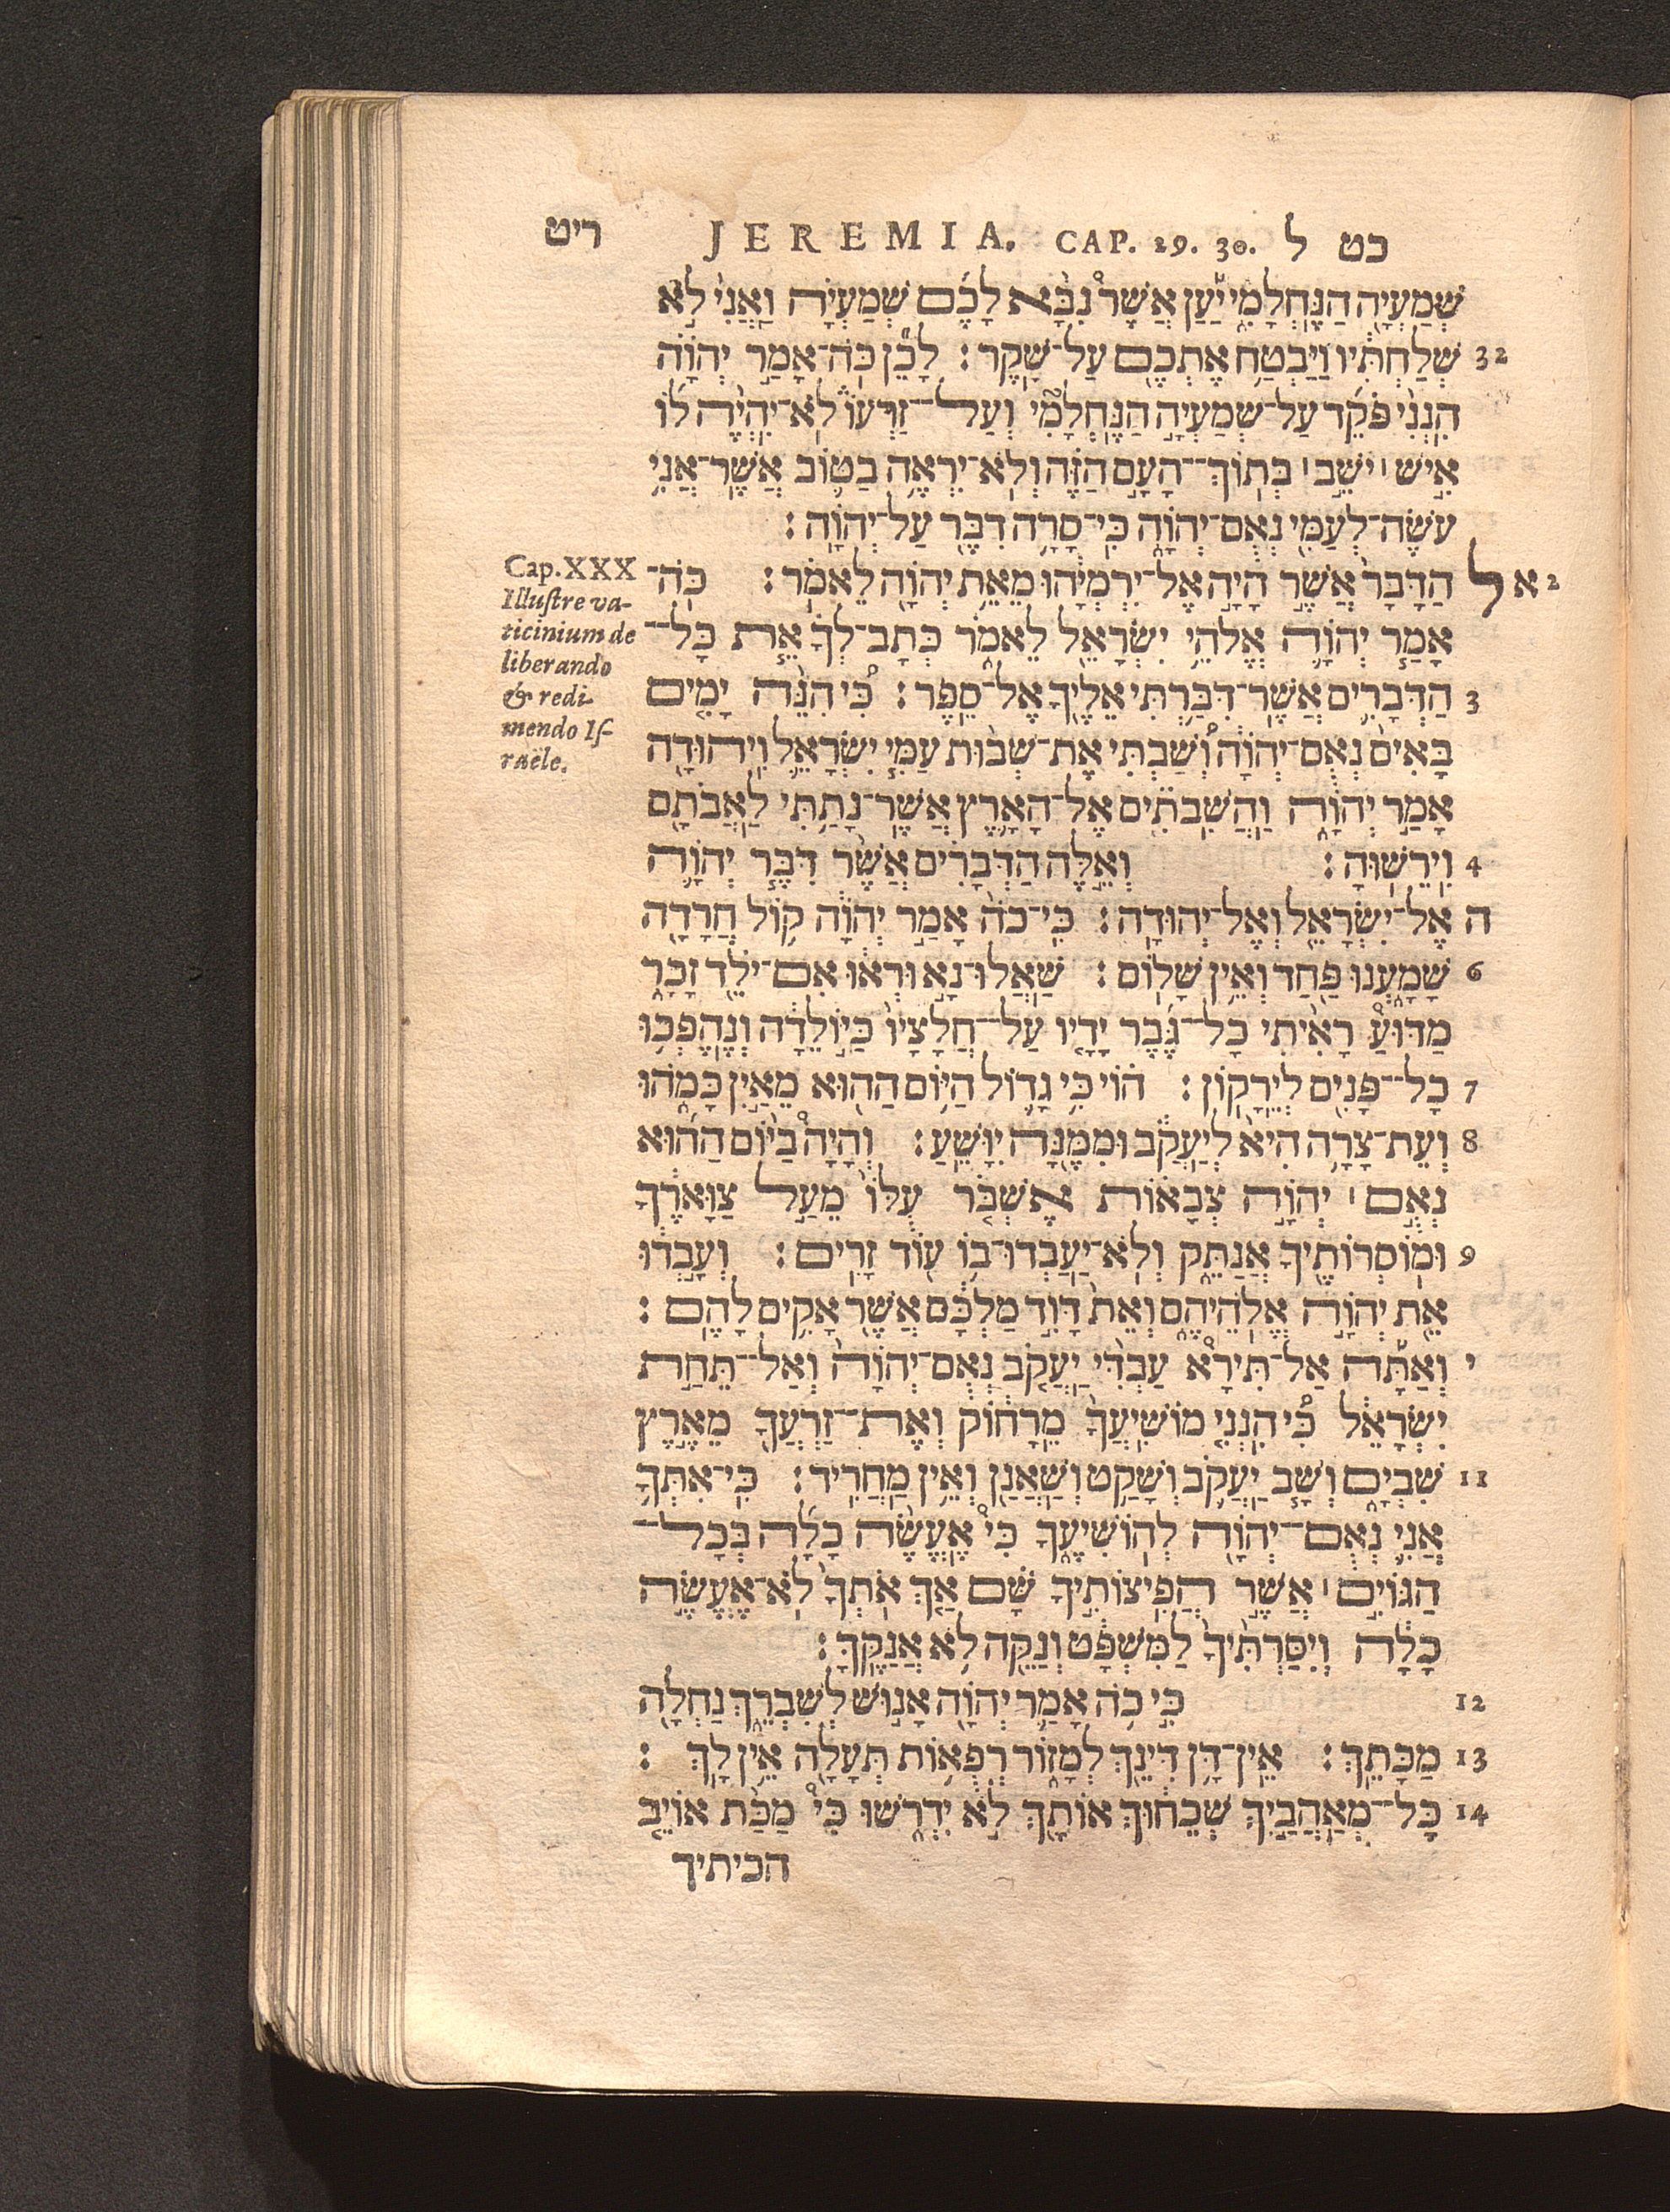 ריט JEREMIA. CAP. 29. 30. ל כט
שְׁמַעְיָה הַנֶּחֱלָמִי יַעַן אֲשֶׁר נִבָּא לָכֶם שְׁמַעְיָה וַאֲנִי לֹא
32 שְׁלַחְתִּיו וַיַּבְטַח אֶתְכֶם עַל־שָׁקֶר׃ לָכֵן כֹּה־אָמַר יְהוָֹה
הִנְנִי פֹקֵד עַל־שְׁמַעְיָה הַנֶּחֱלָמִי וְעַל־זַרְעוֹ לֹא־יִהְיֶה לוֹ
אִישׁ ׀ יֹשֵׁב ׀ בְּתוֹךְ־הָעָם הַזֶּה וְלֹא־יִרְאֶה בַטּוֹב אֲשֶׁר־אֲנִי
עֹשֶׂה־לְעַמִּי נְאֻם־יְהוָֹה כִּי־סָרָה דִבֶּר עַל־יְהוָֹה׃
Cap. XXX
Illuſtre va-
ticinium de
liberando
& redi-
mendo Iſ-
raële.
ל א 2 הַדָּבָר אֲשֶׁר הָיָה אֶל־יִרְמְיָהוּ מֵאֵת יְהוָֹה לֵאמֹר׃ כֹּה־
אָמַר יְהוָֹה אֱלֹהֵי יִשְׂרָאֵל לֵאמֹר כְּתָב־לְךָ אֵת כָּל־
3 הַדְּבָרִים אֲשֶׁר־דִּבַּרְתִּי אֵלֶיךָ אֶל־סֵפֶר׃ כִּי הִנֵּה יָמִים
בָּאִים נְאֻם־יְהוָֹה וְשַׁבְתִּי אֶת־שְׁבוּת עַמִּי יִשְׂרָאֵל וִיהוּדָה
אָמַר יְהוָֹה וַהֲשִׁבֹתִים אֶל־הָאָרֶץ אֲשֶׁר־נָתַתִּי לַאֲבֹתָם
4 וִירֵשׁוּהָ׃ וְאֵלֶּה הַדְּבָרִים אֲשֶׁר דִּבֶּר יְהוָֹה
ה אֶל־יִשְׂרָאֵל וְאֶל־יְהוּדָה׃ כִּי־כֹה אָמַר יְהוָֹה קוֹל חֲרָדָה
6 שָׁמָעְנוּ פַּחַד וְאֵין שָׁלוֹם׃ שַׁאֲלוּ־נָא וּרְאוּ אִם־יֹלֵד זָכָר
מַדּוּעַ רָאִיתִי כָל־גֶּבֶר יָדָיו עַל־חֲלָצָיו כַּיּוֹלֵדָה וְנֶהֶפְכוּ
7 כָל־פָּנִים לְיֵרָקוֹן׃ הוֹי כִּי גָדוֹל הַיּוֹם הַהוּא מֵאַיִן כָּמֹהוּ
8 וְעֵת־צָרָה הִיא לְיַעֲקֹב וּמִמֶּנָּה יִוָּשֵׁעַ׃ וְהָיָה בַיּוֹם הַהוּא
נְאֻם ׀ יְהוָֹה צְבָאוֹת אֶשְׁבֹּר עֻלּוֹ מֵעַל צַוָּארֶךָ
9 וּמוֹסְרוֹתֶיךָ אֲנַתֵּק וְלֹא־יַעַבְדוּ־בוֹ עוֹד זָרִים׃ וְעָבְדוּ
אֵת יְהוָֹה אֱלֹהֵיהֶם וְאֵת דָּוִד מַלְכָּם אֲשֶׁר אָקִים לָהֶם׃
י וְאַתָּה אַל־תִּירָא עַבְדִּי יַעֲקֹב נְאֻם־יְהוָֹה וְאַל־תֵּחַת
יִשְׂרָאֵל כִּי הִנְנִי מוֹשִׁיעֲךָ מֵרָחוֹק וְאֶת־זַרְעֲךָ מֵאֶרֶץ
11 שִׁבְיָם וְשָׁב יַעֲקֹב וְשָׁקַט וְשַׁאֲנַן וְאֵין מַחֲרִיד׃ כִּי־אִתְּךָ
אֲנִי נְאֻם־יְהוָֹה לְהוֹשִׁיעֶךָ כִּי אֶעֱשֶׂה כָלָה בְּכָל־
הַגּוֹיִם ׀ אֲשֶׁר הֲפִיצוֹתִיךָ שָּׁם אַךְ אֹתְךָ לֹא־אֶעֱשֶׂה
כָלָה וְיִסַּרְתִּיךָ לַמִּשְׁפָּט וְנַקֵּה לֹא אֲנַקֶּךָּ׃
12 כִּי כֹה אָמַר יְהוָֹה אָנוּשׁ לְשִׁבְרֵךְ נַחְלָה
13 מַכָּתֵךְ׃ אֵין־דָּן דִּינֵךְ לְמָזוֹר רְפֻאוֹת תְּעָלָה אֵין לָךְ׃
14 כָּל־מְאַהֲבַיִךְ שְׁכֵחוּךְ אוֹתָךְ לֹא יִדְרֹשׁוּ כִּי מַכַּת אוֹיֵב
הכיתיך